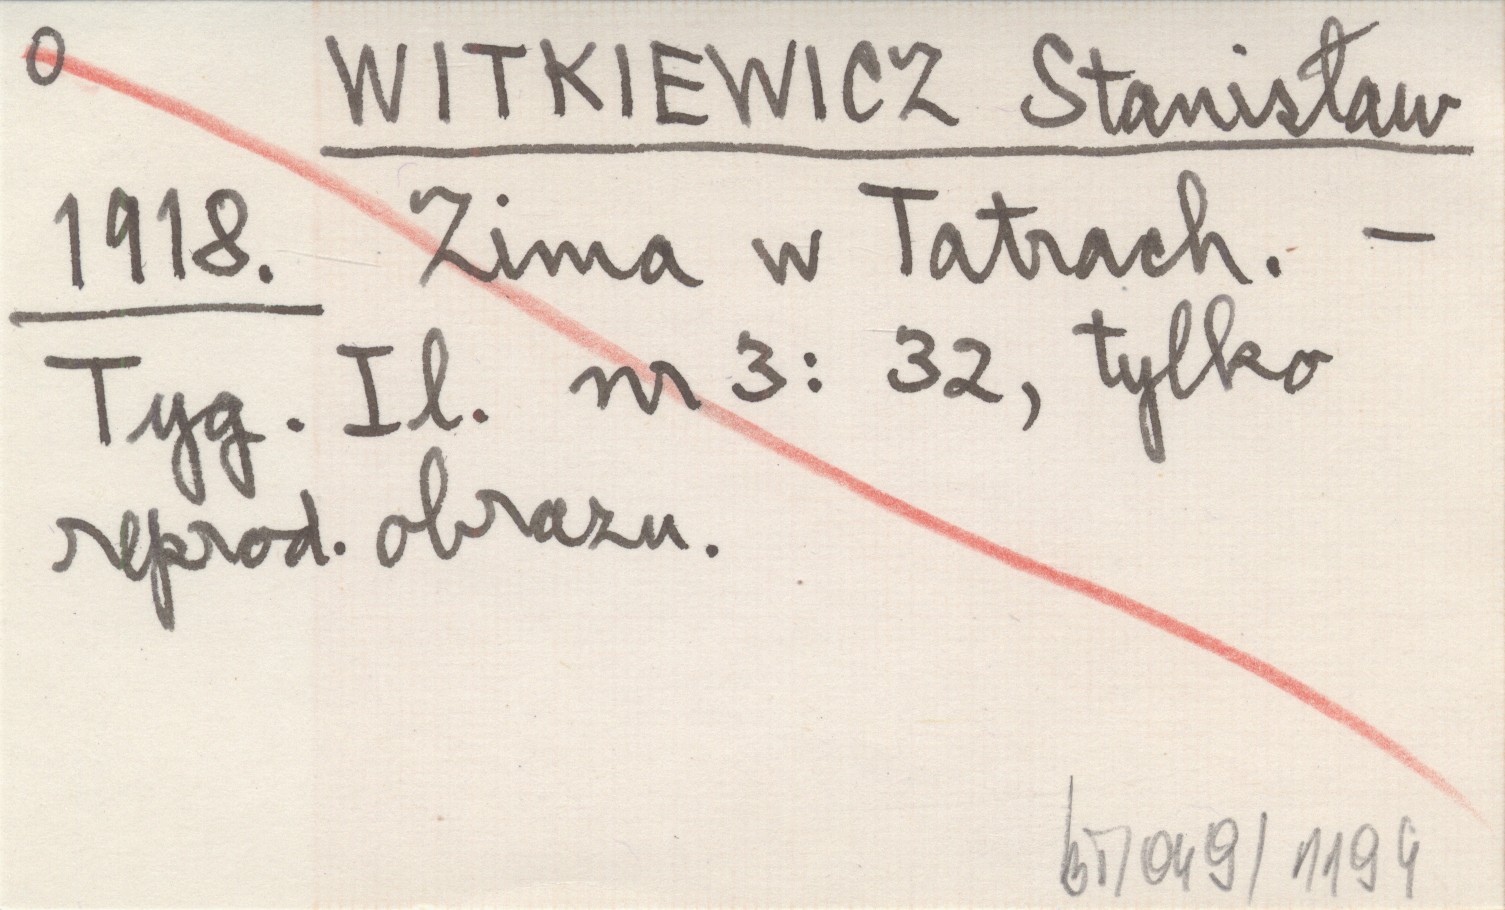 0 WITKIEWICZ Stanisław
1918. Zima w Tatrach. –
Tyg. Il. nr 3: 32, tylko
reprod. obrazu.
/049/ 1194